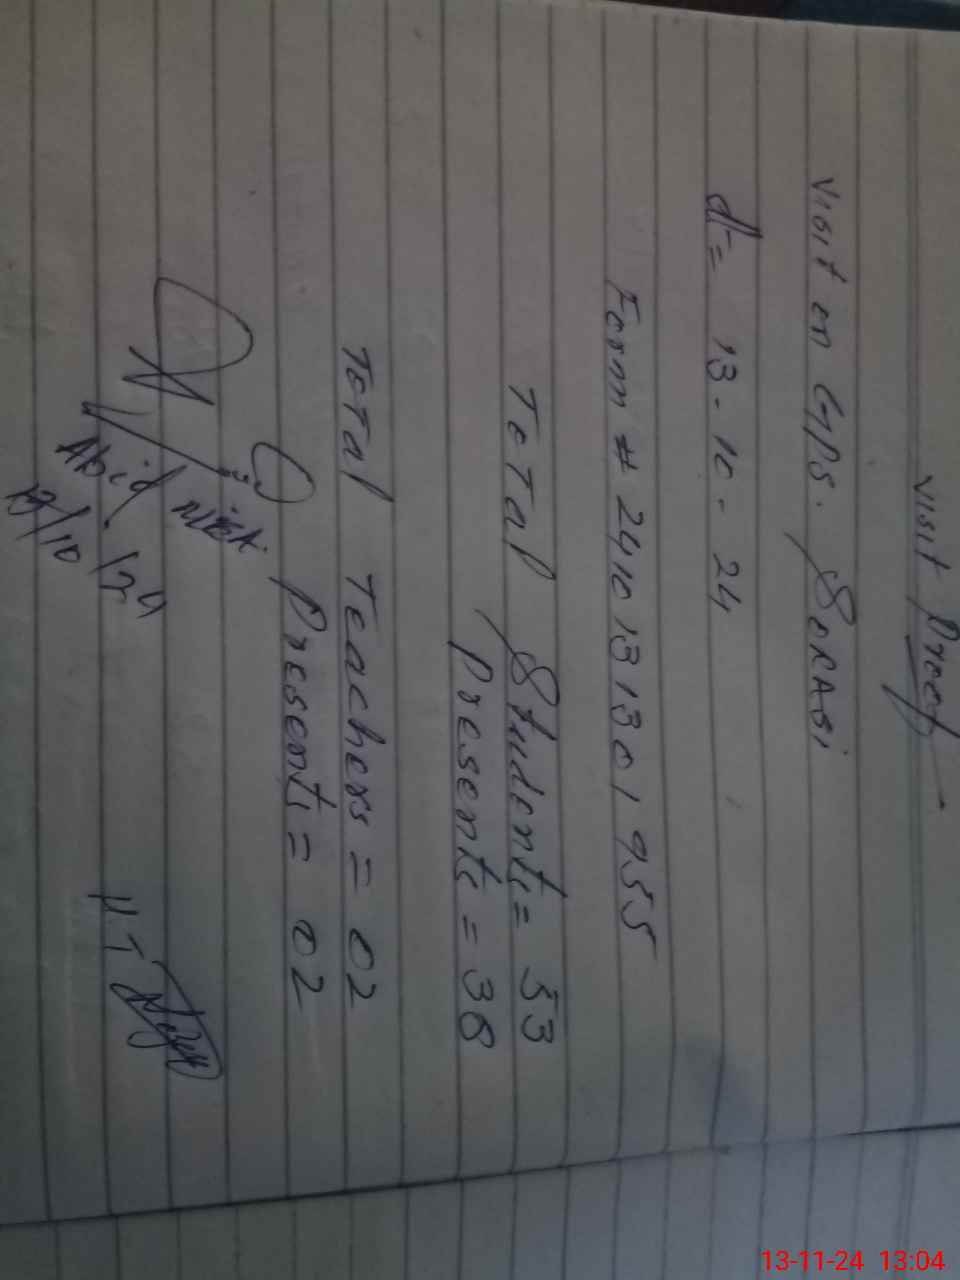 Visit Proof
Visit on GPS. SORABi
dt= 13-10-24
Form # 2410131301955
ToTal Students = 53
Presents = 36
ToTal Teachers = 02
Presents = 02
Abid
13/10/24
H.T
13-11-24 13:04